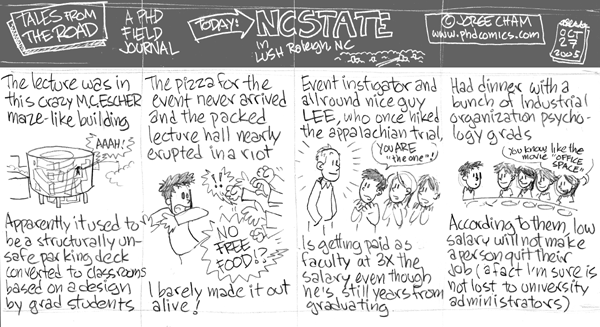 TALES FROM
THE ROAD
A PHD
FIELD
JOURNAL
TODAY:
NC STATE
in
LUSH Raleigh, NC
© JORGE CHAM
www.phdcomics.com
OCT
27
2005
The lecture was in
this crazy M.C. ESCHER
maze-like building
AAAH!
Apparently it used to
be a structurally un-
safe parking deck
converted to classrooms
based on a design
by grad students
The pizza for the
event never arrived
and the packed
lecture hall nearly
erupted in a riot
!!
NO
FREE
FOOD!?
I barely made it out
alive!
Event instigator and
all round nice guy
LEE, who once hiked
the appalachian trial,
YOU ARE
"the one"!
Is getting paid as
faculty at 2X the
salary even though
he's still years from
graduating
Had dinner with a
bunch of Industrial
organization psycho-
logy grads
You know like the
movie "OFFICE
SPACE"
According to them, low
salary will not make
a person quit their
job (a fact I'm sure is
not lost to university
administrators)